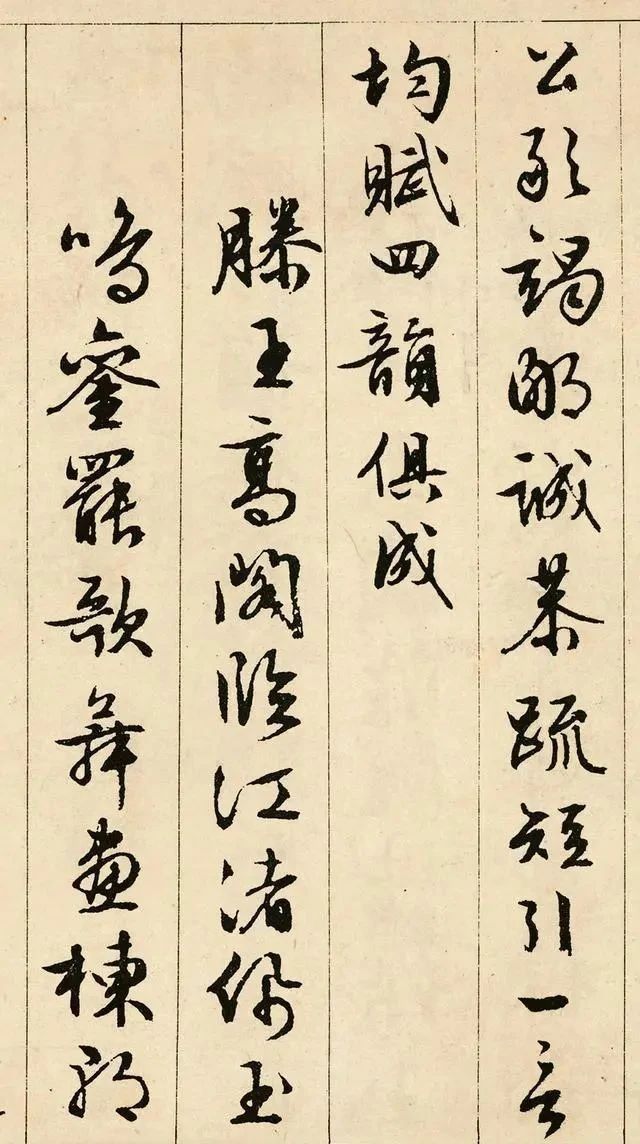 公敢竭鄙誠恭疏短引一言
均賦四韻俱成
滕王高閣臨江渚佩玉
鳴鑾罷歌舞畫棟朝